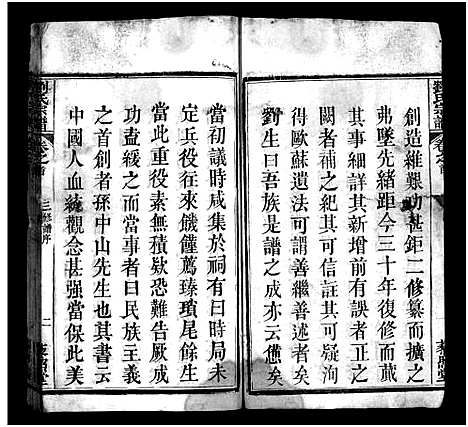 創造維艱功甚鉅二修纂而擴之
弗墜先緒距今三十年復修而葳
其事細詳其新增前有誤者正之
闕者補之紀其可信削其可疑洵
由歐蘇遺法可謂善繼善述者矣
對生曰吾族是譜之成亦云憊矣
當初議時咸集於祠有曰時局未
定兵役往來饑饉薦臻瑣尾餘生
當此重役素無積欵恐難告厥成
功盍緩之而當事者曰民族主義
之首創者孫中山先生也其書云
中國人血統觀念甚強當保此美
劉氏宗譜
卷之首
三修譜序
二
劉氏宗譜
卷之首